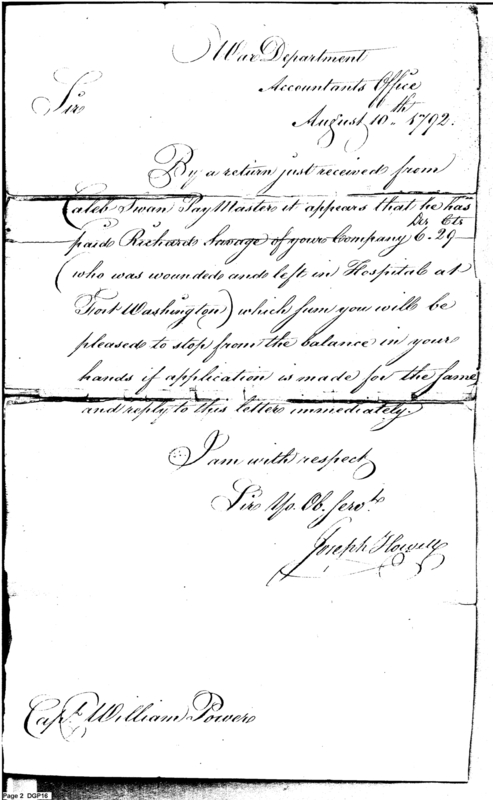 War Department
Accountants Office
Sir
August 10th 1792.
By a return just received from
Caleb Swan Pay Master it appears that he has
Dlrs Cts
paid Richard Savage of your Company 6.29
(who was wounded and left in Hospital at
Fort Washington) which sum you will be
pleased to stop from the balance in your
hands if application is made for the same
and reply to this letter immediately.
I am with respect
Sir Yo. Ob. Servt.
Joseph Howell
Capt. William Power
Page 2 DGP16